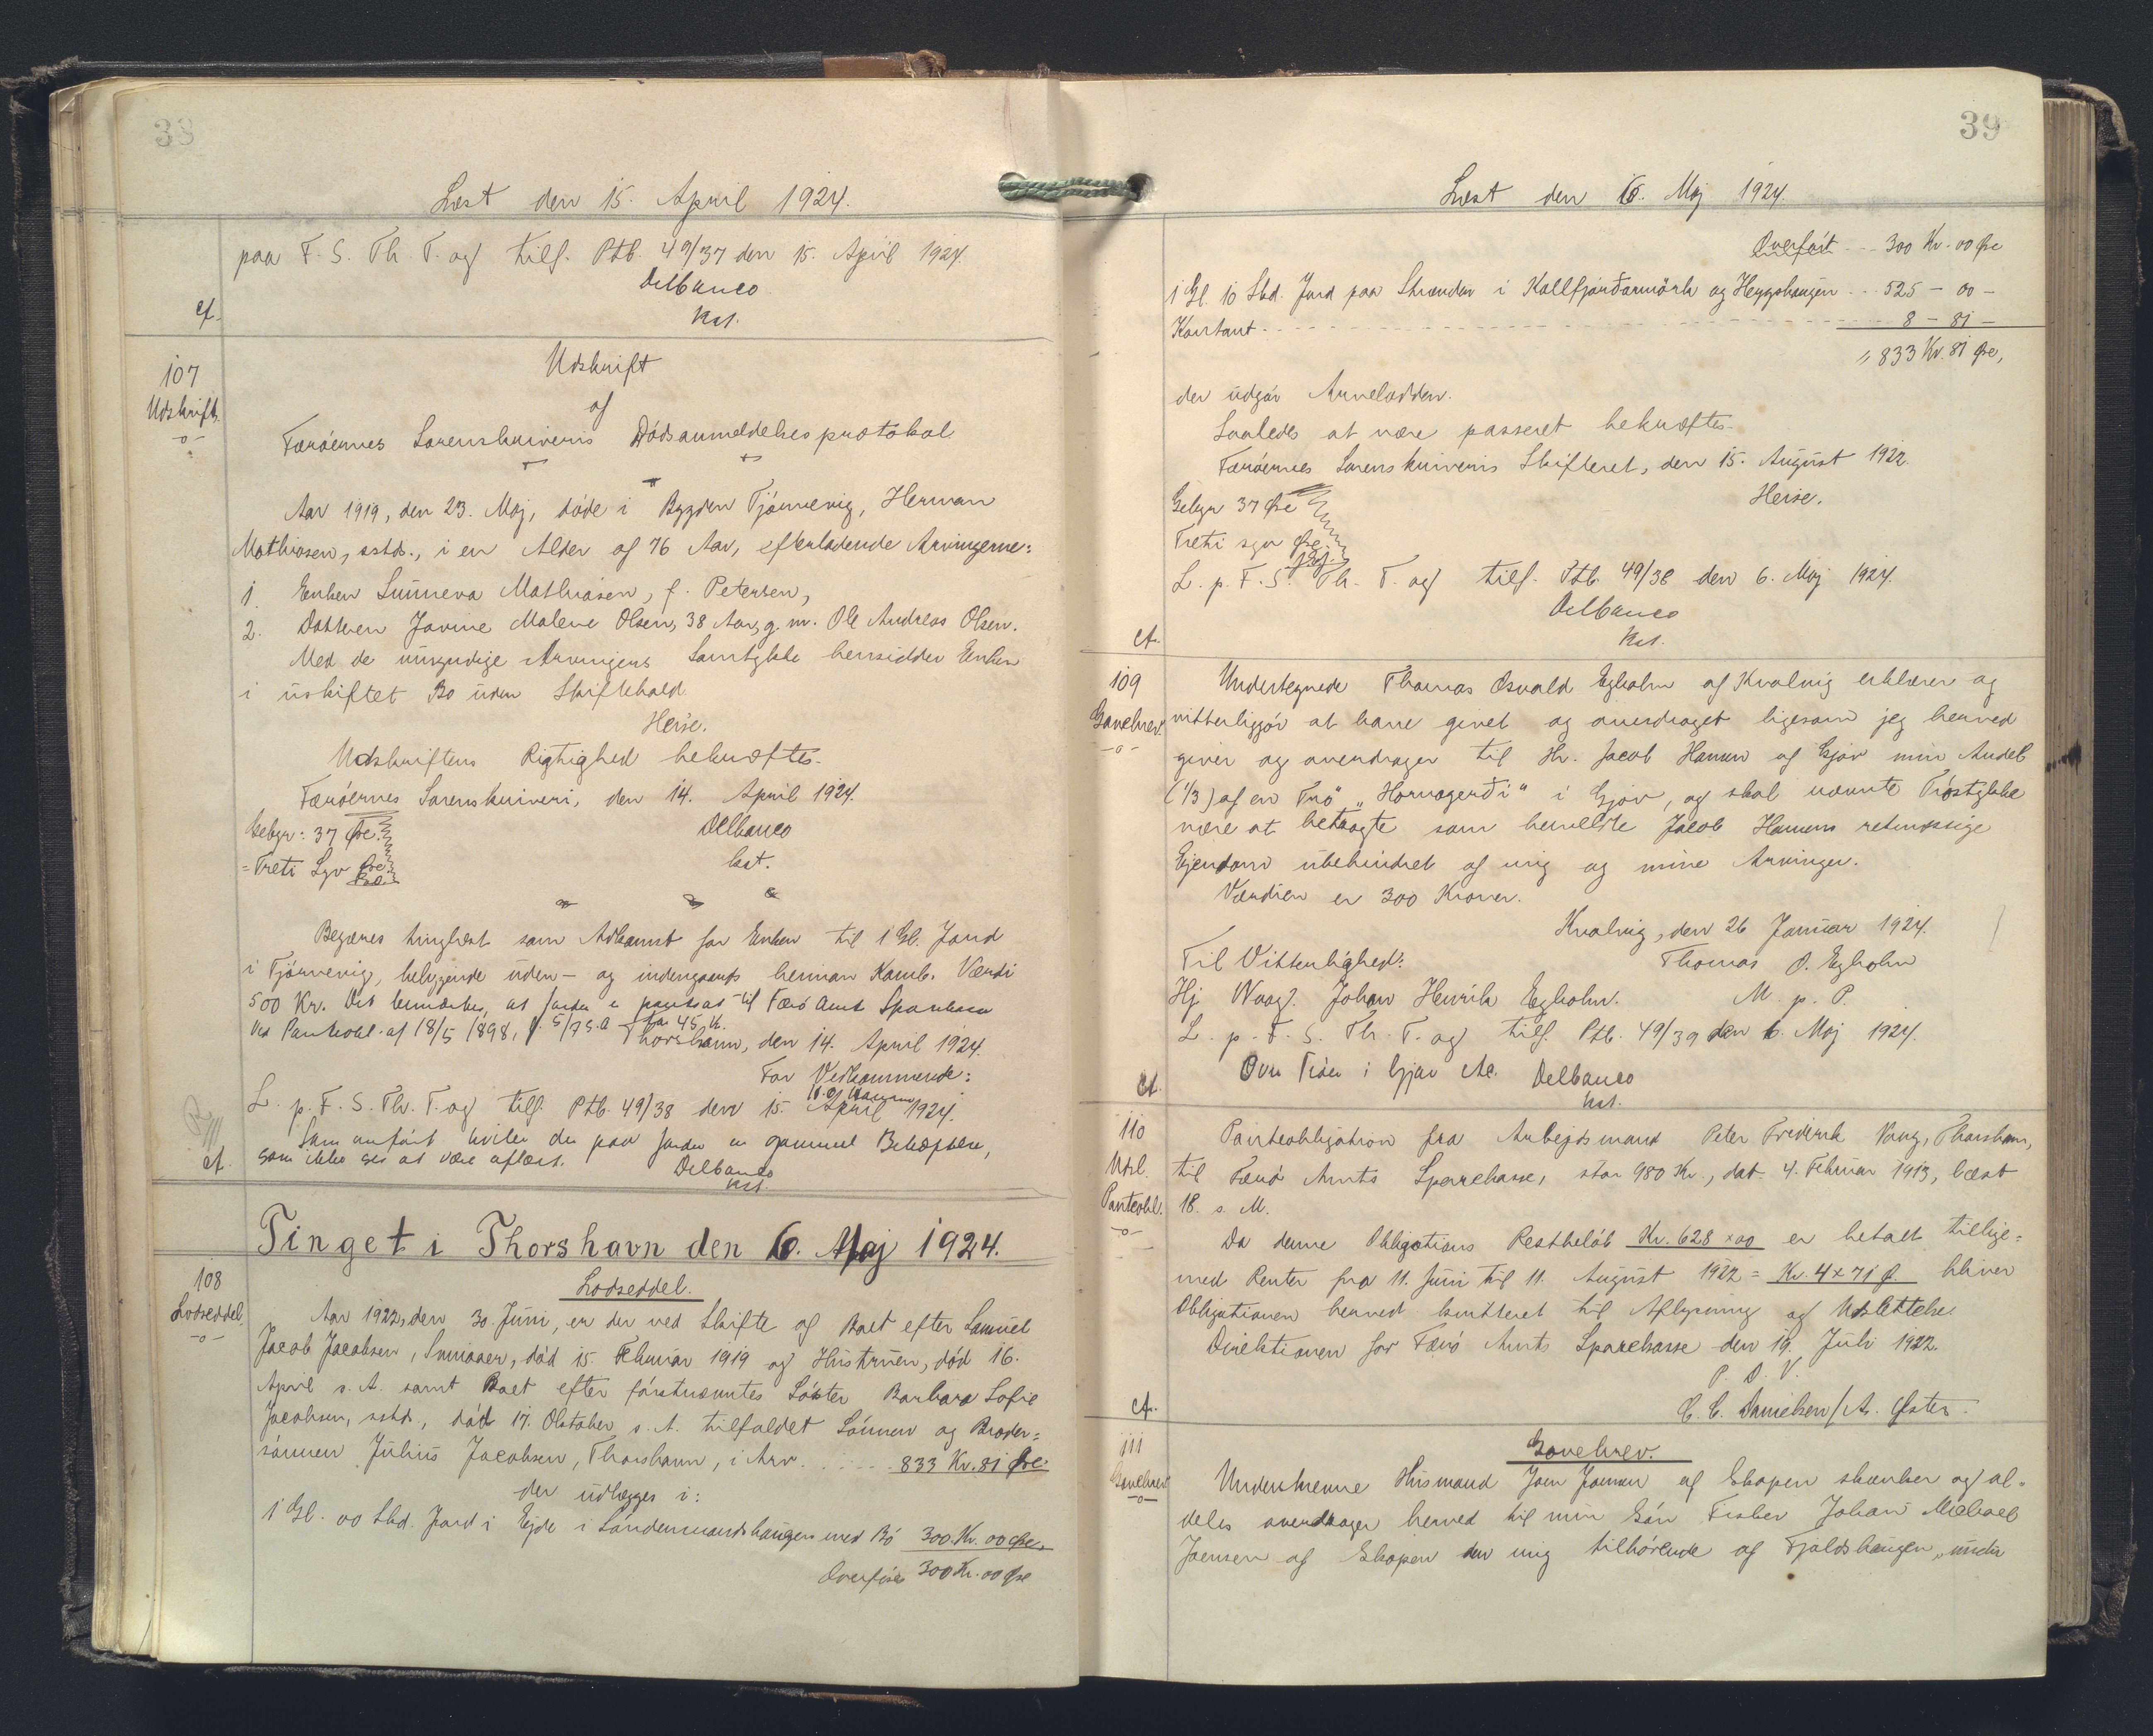 38
Læst den 15. April 1924.
paa F. S. Th. T. og tilf. Ptb. 49/37 den 15. April 1924.
Delbanco
Kst.
Cf.
107
Udskrift.
Udskrift
af
Færóernes Sorenskriveris Dódsanmeldelsesprotokol
Aar 1919, den 23. Maj, döde i Bygden Tjórnevig, Herman
Mathiasen, sstds., i en Alder af 76 Aar, efterladende Arvingerne:
1. Enken Sunneva Mathiasen, f. Petersen,
2. Datteren Javine Malene Olsen, 38 Aar, g. m. Ole Andreas Olsen.
Med de myndige Arvingers Samtykke hensidder Enken
i uskiftet Bo uden Skiftehold
Heise.
Udskriftens Rigtighed bekræftes.
Færóernes Sorenskriveri, den 14. April 1924.
Gebyr: 37 Øre
Delbanco
= Treti Syv Øre
kst.
Begæres tinglæst som Adkomst for Enken til 1 Gl. Jord
i Tjórnevig, beliggende uden- og indengærds herman Kamb. Værdi
500 Kr. Det bemærkes, at Jorden er pantsat til Færö Amts Sparekasse
ved Panteobl. af 18/5 1898, for 45 Kr.
Thorshavn, den 14. April 1924.
For Vedkommende:
L. p. F. S. Th. T. og tilf. Ptb. 49/38 den 15. April 1924.
Som anfórt hviler der paa Jorden en gammel Behæftelse,
som ikke ses at være aflæst.
Delbanco
kst.
cf.
Tinget i Thorshavn den 6. Maj 1924.
108
Lodseddel
Lodseddel.
Aar 1922, den 30. Juni, er der ved Skifte af Boet efter Samuel
Jacob Jacobsen, död 15. Februar 1919 og Hustruen, död 16.
April s. A. samt Boet efter förstnævntes Söster Barbara Sofie
Jacobsen, sstds., död 17. Oktober s. A. tilfaldet Sönnen og Broder=
sönnen Julius Jacobsen, Thorshavn, i Arv 833 Kr. 81 Øre.
der udlægges i:
1 Gl. 00 Skd. Jord i Ejde i Sandemandshaugen med Bó 300 Kr. 00 Øre.
Overföres 300 Kr. 00 Øre
39
Læst den 6. Maj 1924.
Overfört 300 Kr. 00 Øre
1 Gl. 10 Skd. Jord paa Strender i Kallfjarðarmörk og Heygshaugen 525 - 00 -
Kontant 8 - 81 -
833 Kr. 81 Øre,
der udgör Arvelodden.
Saaledes at være passeret bekræftes.
Færóernes Sorenskriveris Skifteret, den 15. August 1922.
Heise.
Gebyr 37 Øre
Treti syv Øre
L. p. F. S. Th. T. og tilf. Ptb. 49/38 den 6. Maj 1924.
Delbanco
Kst.
cf.
109
Gavebrev.
Undertegnede Thomas Osvald Egholm af Kvalvig erklærer og
vitterliggör at have givet og overdraget ligesom jeg herved
giver og overdrager til Hr. Jacob Hansen af Gjov min Andel
(1/3) af en Trö „Hornagerði" i Gjov, og skal nævnte Tröstykke
være at betragte som bemeldte Jacob Hansens retmæssige
Ejendom ubehindret af mig og mine Arvinger.
Værdien er 300 Kroner.
Kvalvig, den 26 Januar 1924.
Til Vitterlighed:
Thomas O. Egholm
Hj. Waag. Johan Henrik Egholm.
M. p. P.
L. p. F. S. Th. T. og tilf. Ptb. 49/39 den 6. Maj 1924.
Delbanco
Kst.
cf.
110
Utsl.
Panteobl.
Panteobligation fra Arbejdsmand Peter Frederik Vang, Thorshavn,
til Færö Amts Sparekasse, stor 980 Kr., dat. 4. Februar 1913, læst
18. s. M.
Da denne Obligations Restbelöb Kr. 628 × 00 er betalt tillige=
med Renter fra 11. Juni til 11. August 1922 = Kr. 4 × 71 Ø. bliver
Obligationen herved kvitteret til Aflysning og Udslettelse.
Direktionen for Færö Amts Sparekasse den 19. Juli 1922.
P. D. V.
C. C. Danielsen / A. Øster.
cf.
111
Gavebrev
Gavebrev.
Underskrevne Husmand Joen Joensen af Skopen skænker og al=
deles overdrager herved til min Sön Fisker Johan Michael
Joensen af Skopen den mig tilhörende af Fjaldshaugen, under